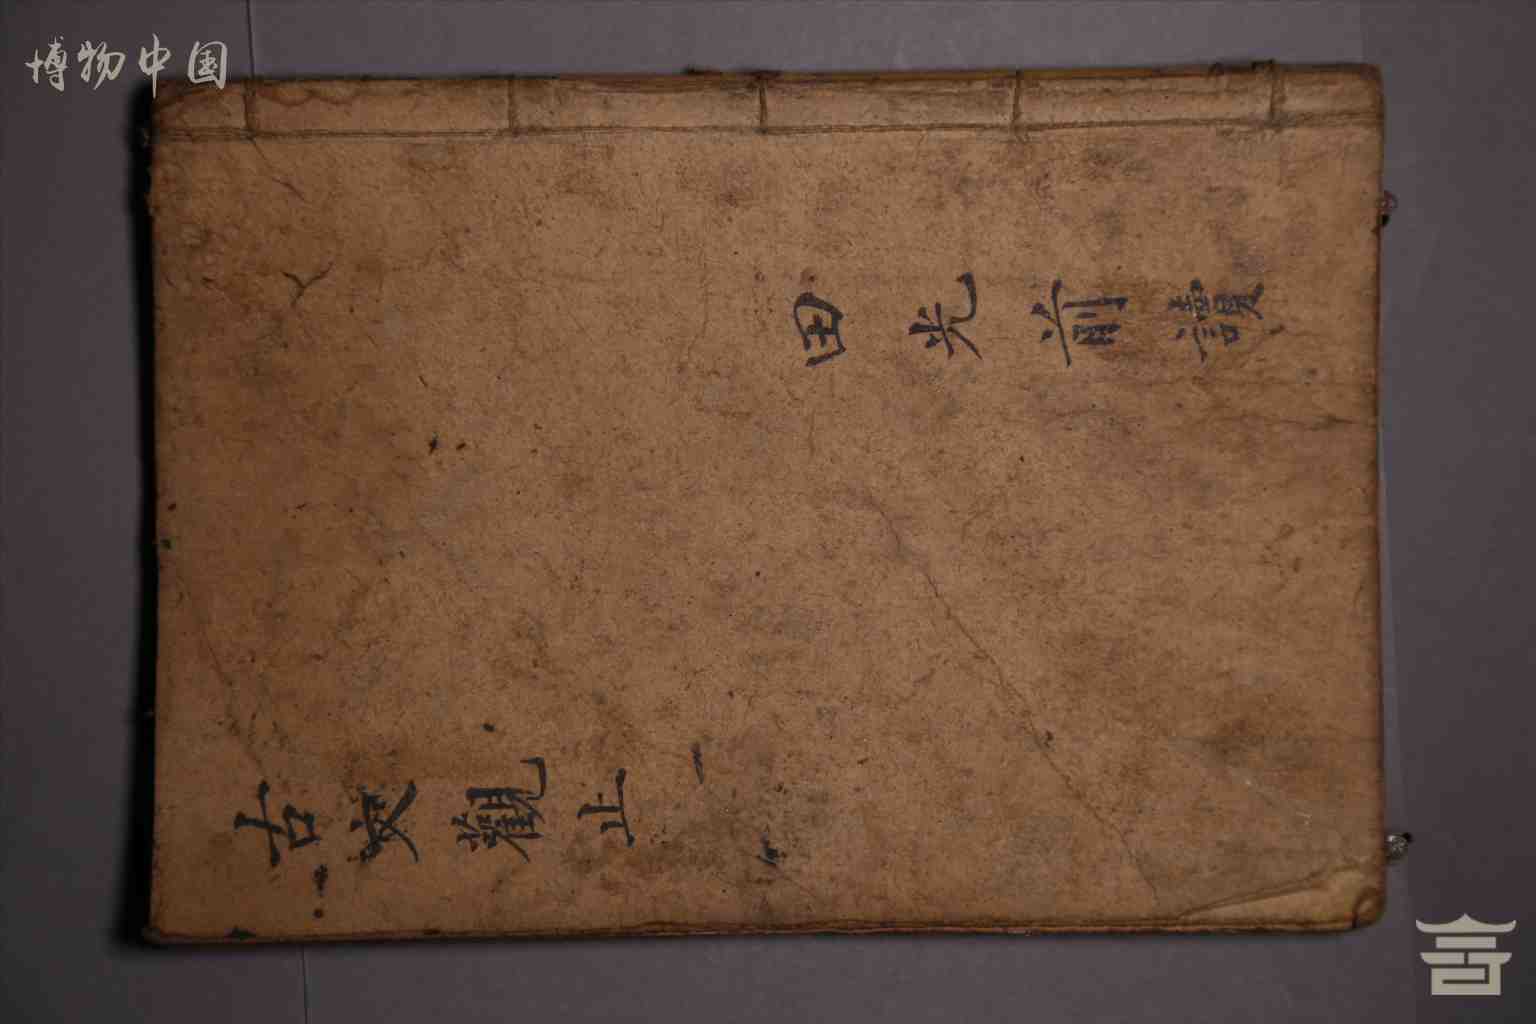 博物中国
古文觀止一
田光前讀